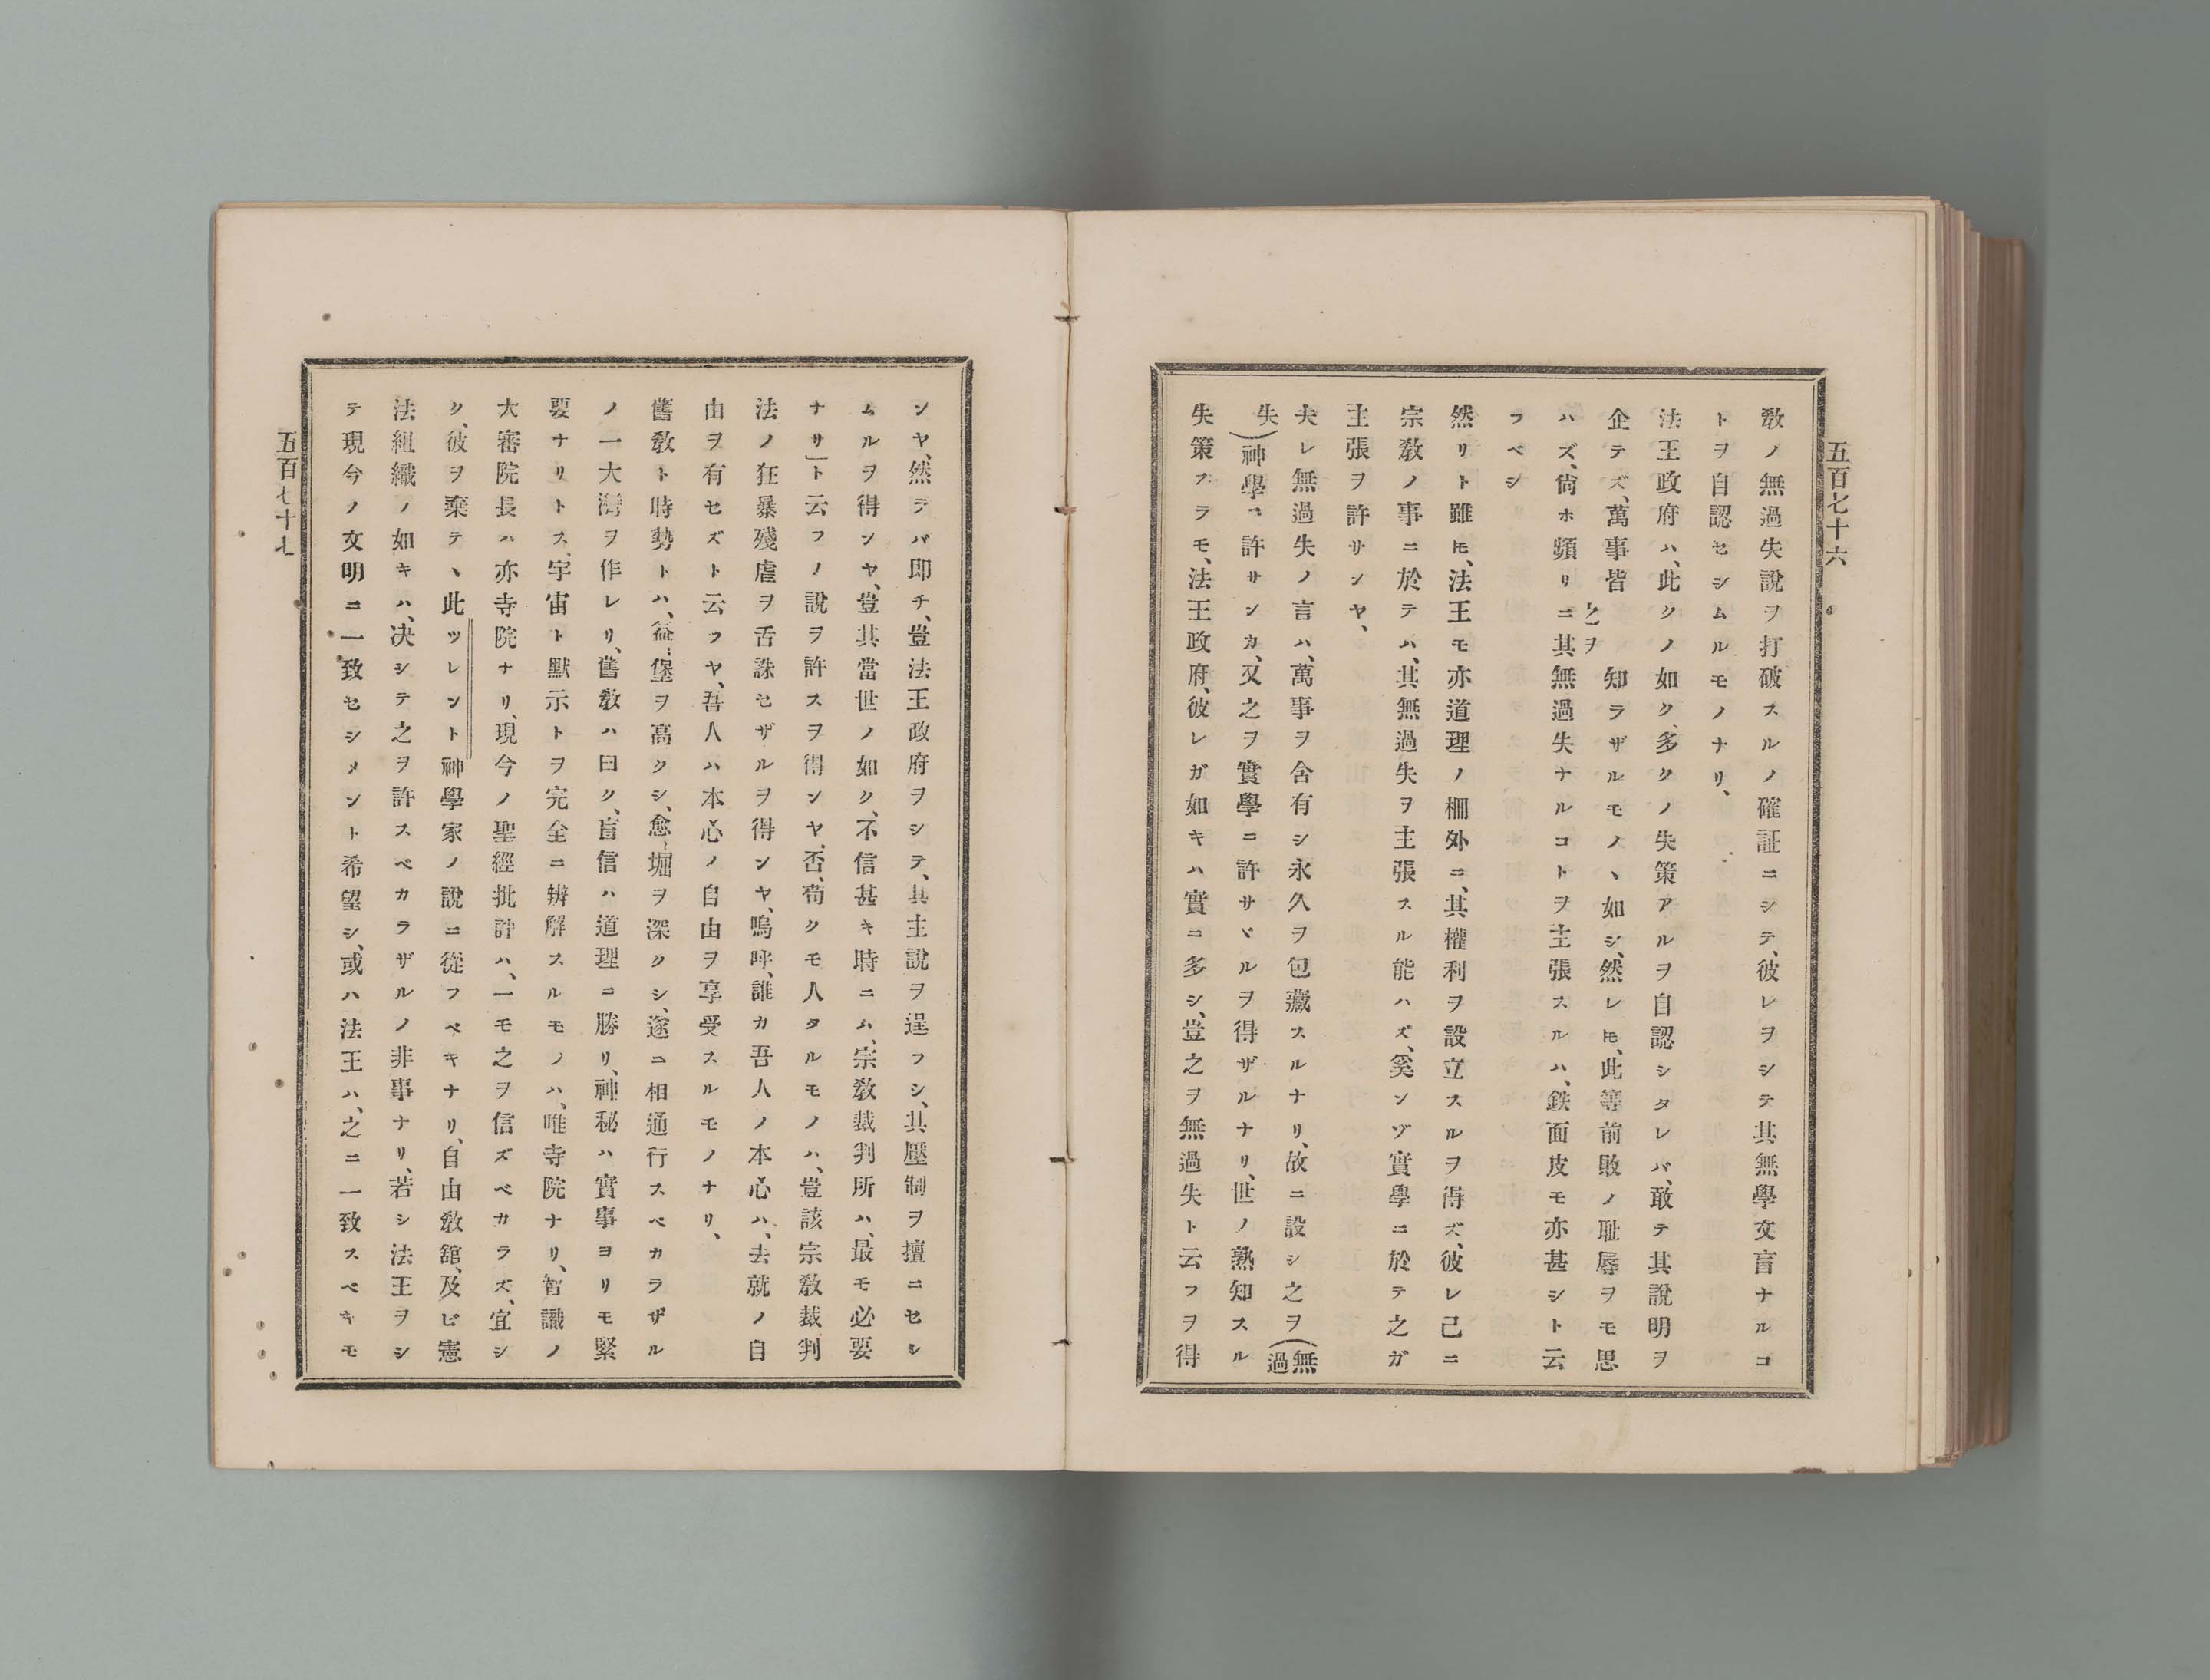 五百七十六
敎ノ無過失說ヲ打破スルノ確証ニシテ、彼レヲシテ其無學文盲ナルコ
トヲ自認セシムルモノナリ、
法王政府ハ、此クノ如ク、多クノ失策アルヲ自認シタレバ、敢テ其說明ヲ
企テズ、萬事皆之ヲ知ラザルモノヽ如シ、然レ𪜈、此等前敗ノ耻辱ヲモ思
ハズ、尙ホ頻リニ其無過失ナルコトヲ主張スルハ、鉄面皮モ亦甚シト云
フベシ
然リト雖𪜈、法王モ亦道理ノ柵外ニ、其權利ヲ設立スルヲ得ズ、彼レ己ニ
宗敎ノ事ニ於テハ、其無過失ヲ主張スル能ハズ、奚ンゾ實學ニ於テ之ガ
主張ヲ許サンヤ、
夫レ無過失ノ言ハ、萬事ヲ含有シ永久ヲ包藏スルナリ、故ニ設シ之ヲ(無過
失)神學ニ許サンカ、又之ヲ實學ニ許サヾルヲ得ザルナリ、世ノ熟知スル
失策スラモ、法王政府、彼レガ如キハ實ニ多シ、豈之ヲ無過失ト云フヲ得
ンヤ、然ラバ即チ、豈法王政府ヲシテ、其主說ヲ逞フシ、其壓制ヲ擅ニセシ
ムルヲ得ンヤ、豈其當世ノ如ク、不信甚キ時ニハ、宗敎裁判所ハ、最モ必要
ナリ」ト云フノ說ヲ許スヲ得ンヤ、否、苟クモ人タルモノハ、豈該宗敎裁判
法ノ狂暴殘虐ヲ舌誅セザルヲ得ンヤ、嗚呼、誰カ吾人ノ本心ハ、去就ノ自
由ヲ有セズト云フヤ、吾人ハ本心ノ自由ヲ享受スルモノナリ、
舊敎ト時勢トハ、益〻堡ヲ高クシ、愈〻堀ヲ深クシ、遂ニ相通行スベカラザル
ノ一大灣ヲ作レリ、舊敎ハ曰ク、盲信ハ道理ニ勝リ、神秘ハ實事ヨリモ緊
要ナリトス、宇宙ト默示トヲ完全ニ辨解スルモノハ、唯寺院ナリ、智識ノ
大審院長ハ亦寺院ナリ、現今ノ聖經批評ハ、一モ之ヲ信ズベカラズ、宜シ
ク、彼ヲ棄テヽ此ツレント神學家ノ說ニ從フベキナリ、自由敎舘、及ビ憲
法組織ノ如キハ、决シテ之ヲ許スベカラザルノ非事ナリ、若シ法王ヲシ
テ現今ノ文明ニ一致セシメント希望シ、或ハ法王ハ、之ニ一致スベキモ
五百七十七